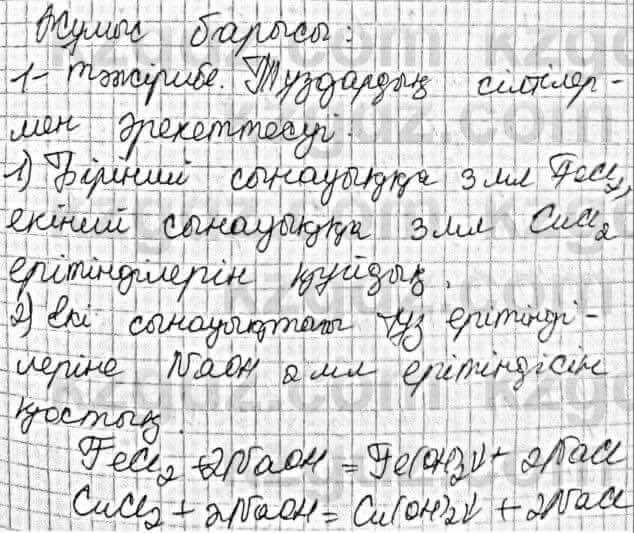 Жұмыс барысы:
1-тәжірибе. Тұздардың сілтілер-
мен әрекеттесуі.
1) Бірінші сынауыққа 3 мл FeCl₂,
екінші сынауыққа 3 мл CuCl₂
ерітінділерін құйдық.
2) Екі сынауықтағы тұз ерітінді-
леріне NaOH 2 мл ерітіндісін
қостық.
FeCl₂ + 2NaOH = Fe(OH)₂↓ + 2NaCl
CuCl₂ + 2NaOH = Cu(OH)₂↓ + 2NaCl